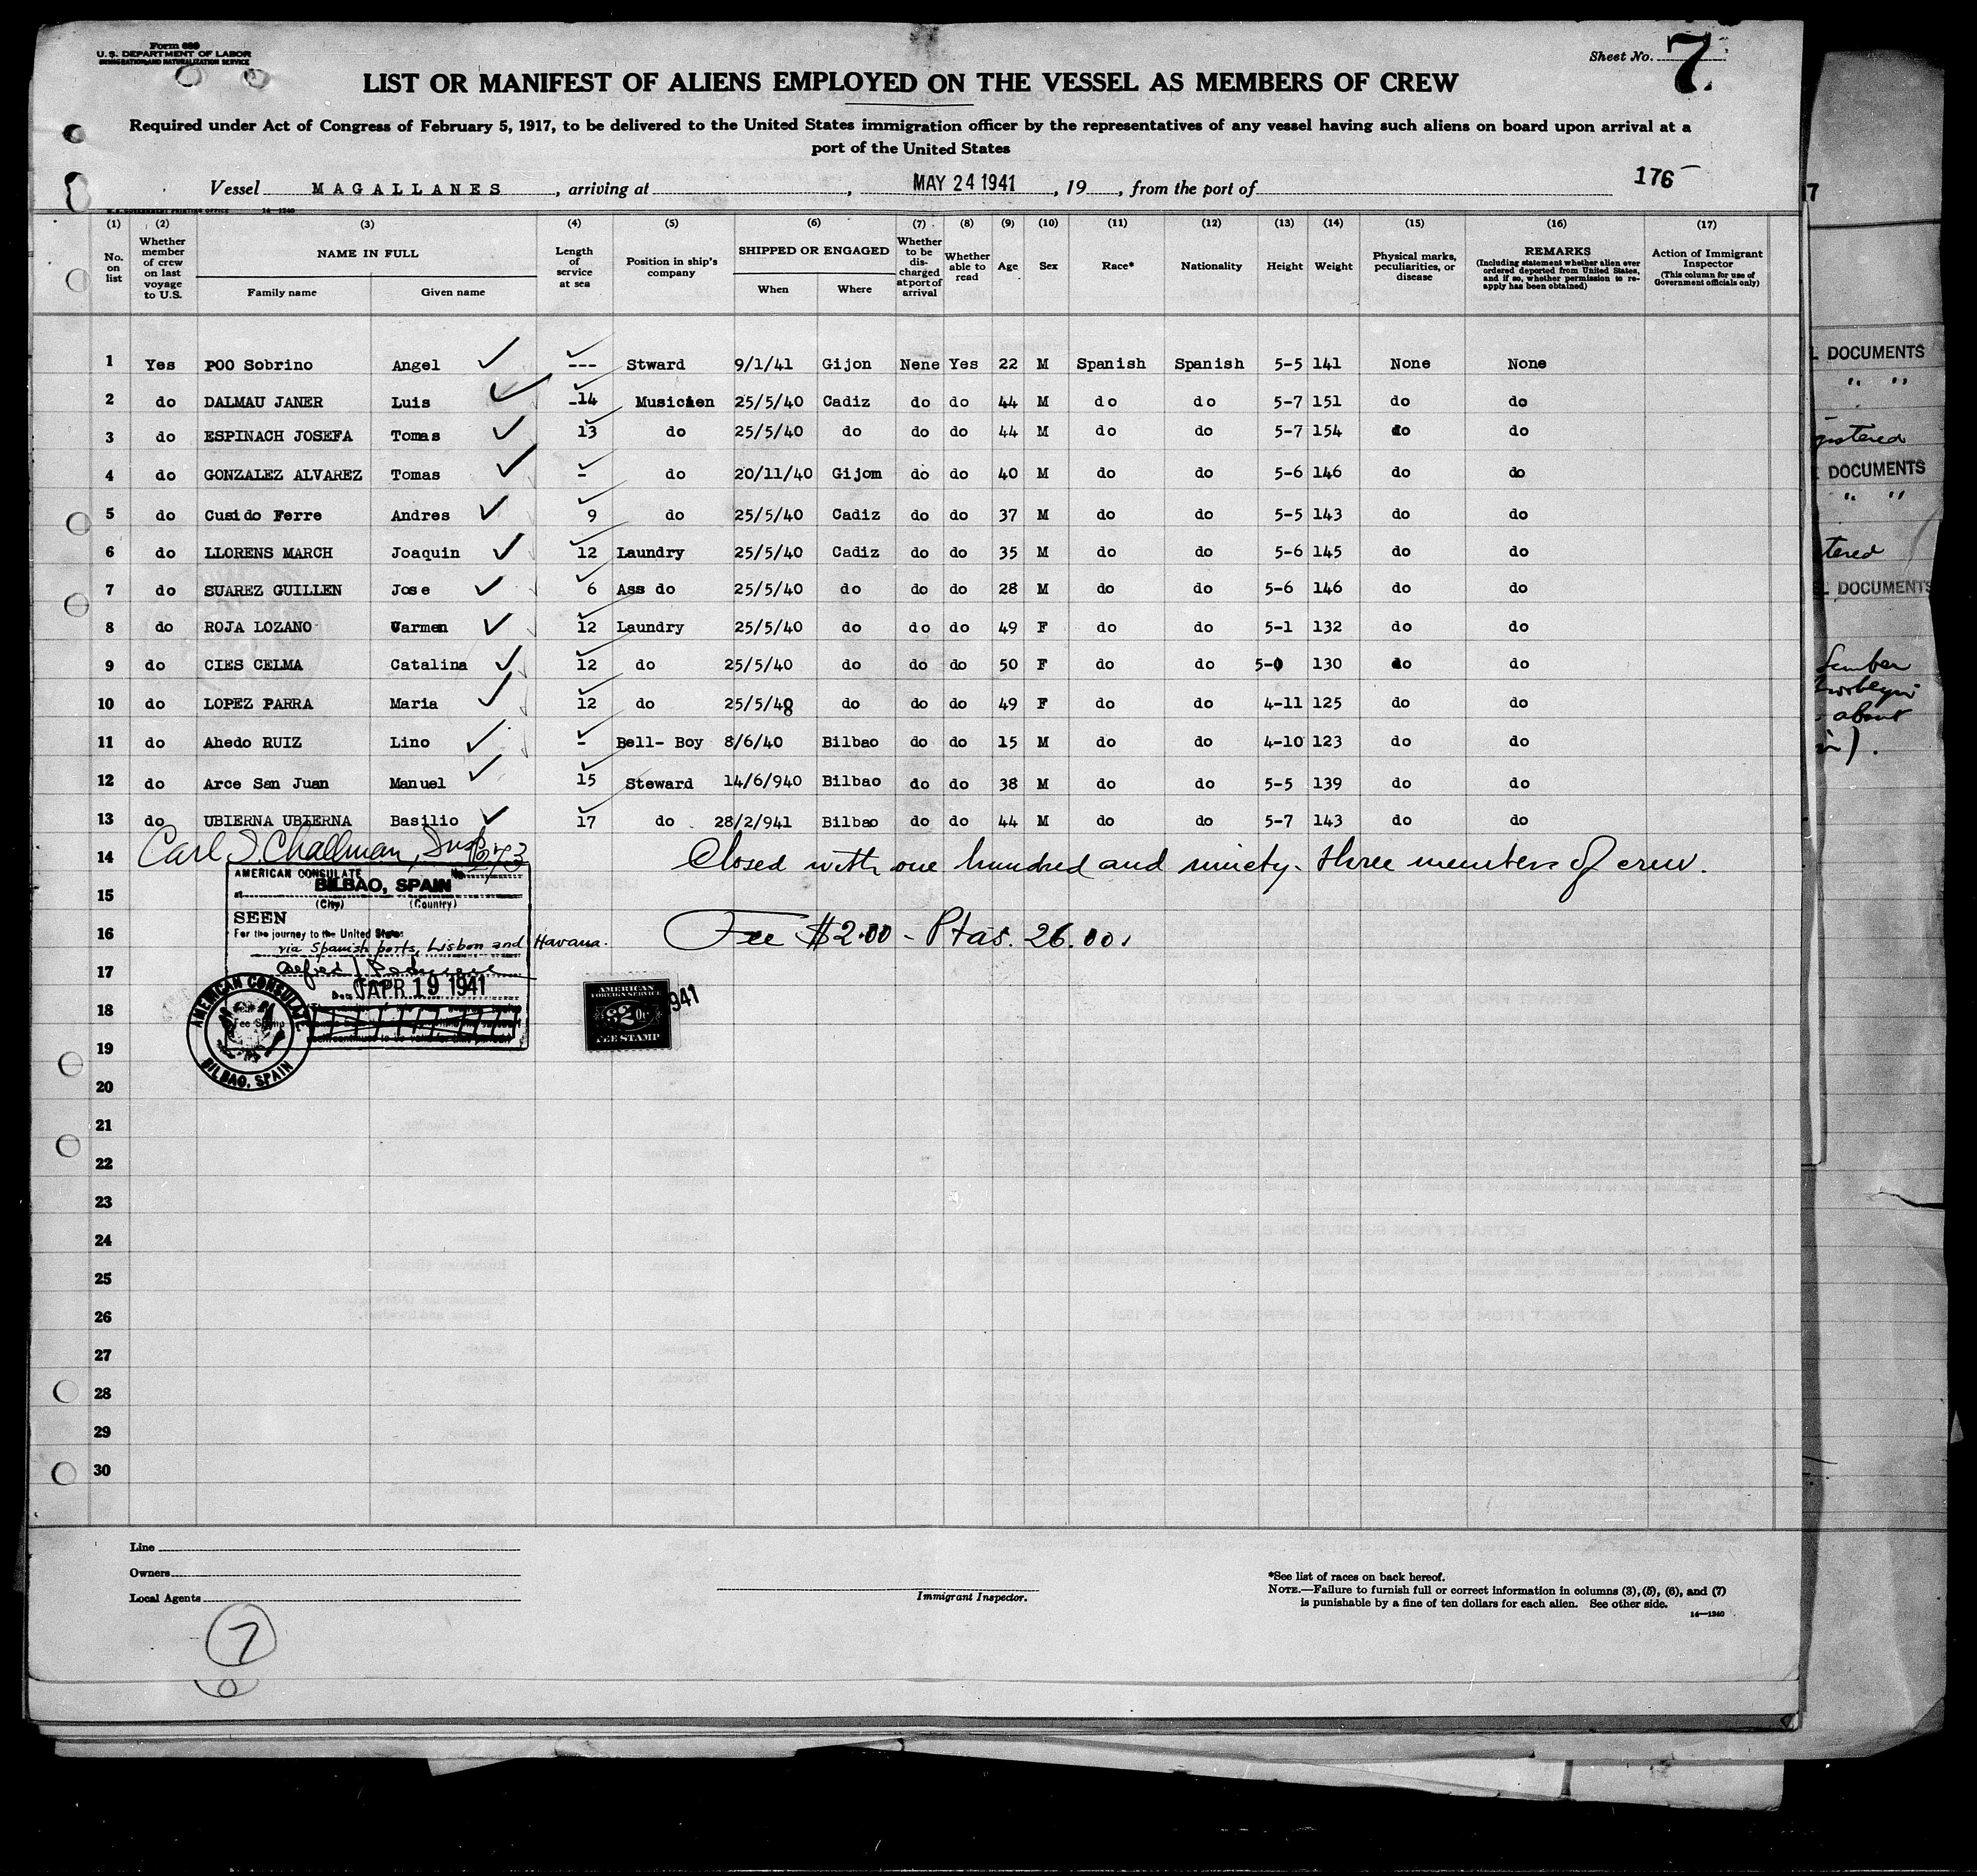 Form 680
U. S. DEPARTMENT OF LABOR
IMMIGRATION AND NATURALIZATION SERVICE
Sheet No. 7
LIST OR MANIFEST OF ALIENS EMPLOYED ON THE VESSEL AS MEMBERS OF CREW
Required under Act of Congress of February 5, 1917, to be delivered to the United States immigration officer by the representatives of any vessel having such aliens on board upon arrival at a
port of the United States
Vessel MAGALLANES, arriving at , MAY 24 1941, 19 , from the port of 176
U. S. GOVERNMENT PRINTING OFFICE 14—1240
(1) (2) (3) (4) (5) (6) (7) (8) (9) (10) (11) (12) (13) (14) (15) (16) (17)
No. on list
Whether member of crew on last voyage to U.S.
NAME IN FULL
Family name Given name
Length of service at sea
Position in ship's company
SHIPPED OR ENGAGED
When Where
Whether to be discharged at port of arrival
Whether able to read
Age
Sex
Race*
Nationality
Height
Weight
Physical marks, peculiarities, or disease
REMARKS
(Including statement whether alien ever ordered deported from United States, and if so, whether permission to reapply has been obtained)
Action of Immigrant Inspector
(This column for use of Government officials only)
1 Yes POO Sobrino Angel --- Stward 9/1/41 Gijon Nene Yes 22 M Spanish Spanish 5-5 141 None None
2 do DALMAU JANER Luis -14 Musicien 25/5/40 Cadiz do do 44 M do do 5-7 151 do do
3 do ESPINACH JOSEFA Tomas 13 do 25/5/40 do do do 44 M do do 5-7 154 do do
4 do GONZALEZ ALVAREZ Tomas - do 20/11/40 Gijom do do 40 M do do 5-6 146 do do
5 do Cusido Ferre Andres 9 do 25/5/40 Cadiz do do 37 M do do 5-5 143 do do
6 do LLORENS MARCH Joaquin 12 Laundry 25/5/40 Cadiz do do 35 M do do 5-6 145 do do
7 do SUAREZ GUILLEN Jose 6 Ass do 25/5/40 do do do 28 M do do 5-6 146 do do
8 do ROJA LOZANO Carmen 12 Laundry 25/5/40 do do do 49 F do do 5-1 132 do do
9 do CIES CELMA Catalina 12 do 25/5/40 do do do 50 F do do 5-0 130 do do
10 do LOPEZ PARRA Maria 12 do 25/5/40 do do do 49 F do do 4-11 125 do do
11 do Ahedo RUIZ Lino - Bell- Boy 8/6/40 Bilbao do do 15 M do do 4-10 123 do do
12 do Arce San Juan Manuel 15 Steward 14/6/940 Bilbao do do 38 M do do 5-5 139 do do
13 do UBIERNA UBIERNA Basilio 17 do 28/2/941 Bilbao do do 44 M do do 5-7 143 do do
14 Carl J. Challman, Insp. Closed with one hundred and ninety-three members of crew.
AMERICAN CONSULATE No. 1273
15 at BILBAO, SPAIN
(City) (Country)
SEEN
16 For the journey to the United States Fee $2.00 - Ptas. 26.00.
via Spanish ports, Lisbon and Havana.
17
Date APR 19 1941
18
AMERICAN CONSULATE
BILBAO, SPAIN
AMERICAN
FOREIGN SERVICE
$2.00
FEE STAMP
1941
19
20
21
22
23
24
25
26
27
28
29
30
Line
Owners
Local Agents
Immigrant Inspector.
*See list of races on back hereof.
NOTE.—Failure to furnish full or correct information in columns (3), (5), (6), and (7)
is punishable by a fine of ten dollars for each alien. See other side.
14—1240
7
7
DOCUMENTS
" "
DOCUMENTS
" "
DOCUMENTS
about